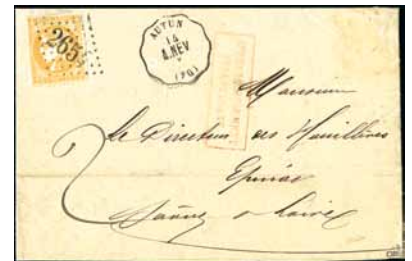 265
AUTUN
14
A.NEV
Monsieur
Le Directeur des Houillères
Epinac
Saône & Loire
2